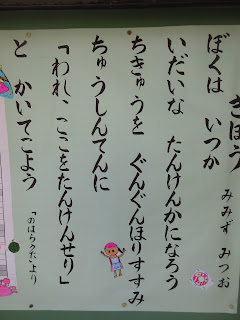 きぼう
みみず みつお
ぼくは いつか
いだいな たんけんかになろう
ちきゅうを ぐんぐんほりすすみ
ちゅうしんてんに
「われ、ここをたんけんせり」
と かいてこよう
「のはらうた」より